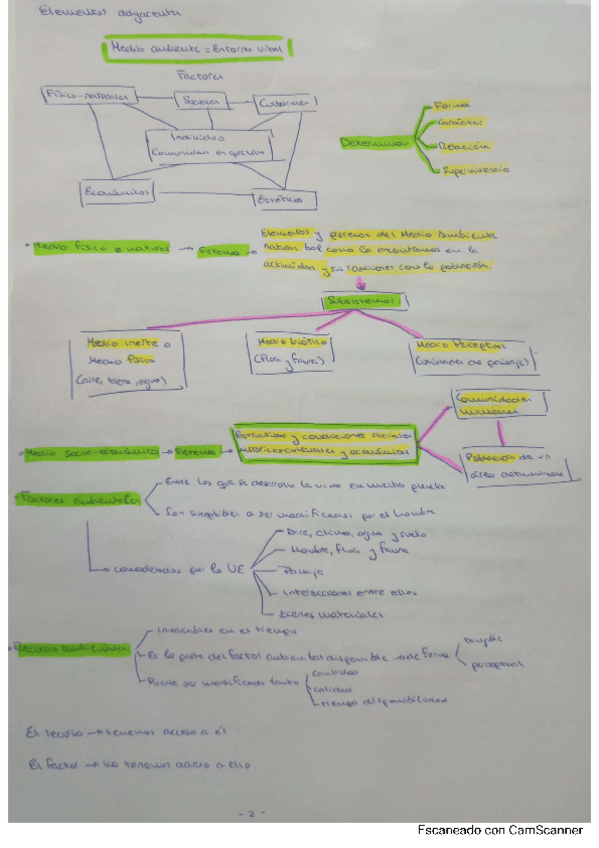 Elementos adyacentes
Medio ambiente = Entorno vital
Factores
Físico-naturales
Sociales
Culturales
Individuo
Comunidad en gestión
Económicos
Estéticos
Determinan
Forma
Carácter
Relación
Supervivencia
Medio físico o natural → Sistema →
Elementos y procesos del Medio Ambiente
natural tal como lo encontramos en la
actualidad y sus relaciones con la población.
Subsistemas
Medio inerte o
Medio físico
(aire, tierra, agua)
Medio biótico
(flora y fauna)
Medio Perceptual
(unidades de paisaje)
Comunidades
humanas
Medio socio-económico → Sistema →
Estructuras y condiciones sociales
histórico-culturales y económicas
Población de un
área determinada
Factores ambientales
Entre los que se desarrolla la vida en nuestro planeta
Son susceptibles a ser modificados por el hombre
considerados por la UE
Aire, clima, agua y suelo
Hombre, flora y fauna
Paisaje
Interacciones entre ellos
bienes materiales
Recursos ambientales
Invariables en el tiempo
Es la parte del factor ambiental disponible → de forma
tangible
perceptual
Puede ser modificado tanto
cantidad
calidad
tiempo disponibilidad
El recurso → tenemos acceso a él
El factor → no tenemos acceso a ello.
- 2 -
Escaneado con CamScanner